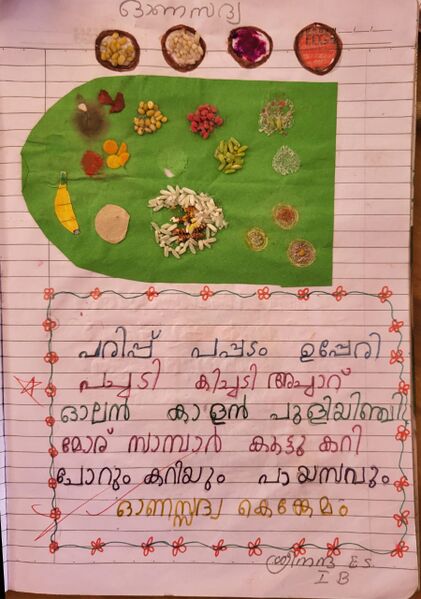 ഓണസദ്യ
പരിപ്പ് പപ്പടം ഉപ്പേരി
പച്ചടി കിച്ചടി അച്ചാറ്
ഓലൻ കാളൻ പുളിയിഞ്ചി
മോര് സാമ്പാർ കൂട്ടുകറി
ചോറും കറിയും പായസവും
ഓണസ്സദ്യ കെങ്കേമം
ശ്രീനന്ദ E.S.
I B